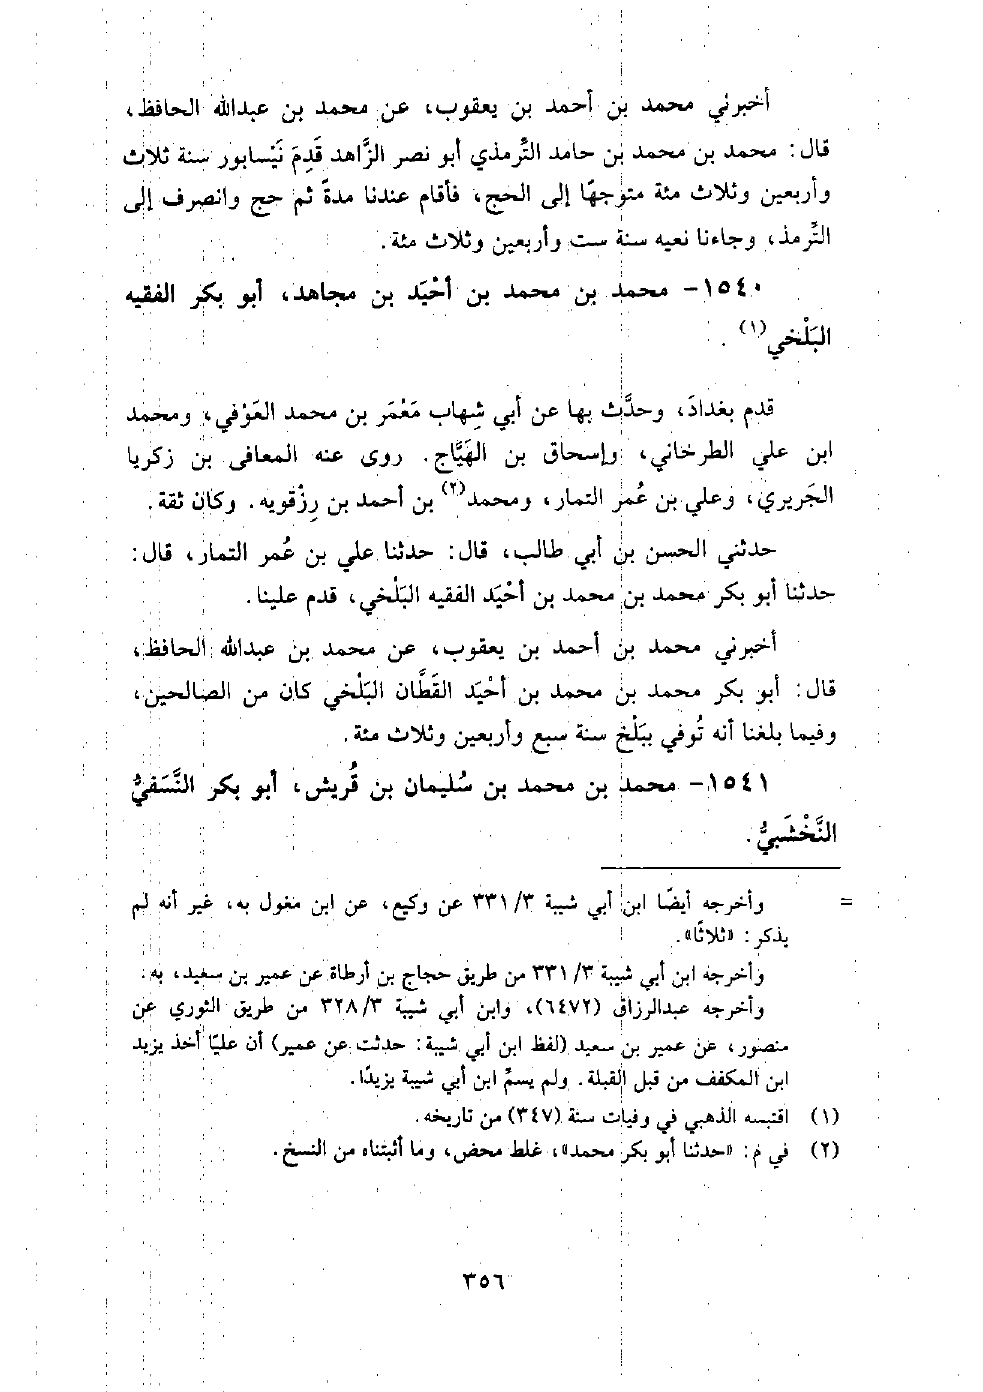 أخبرني محمد بن أحمد بن يعقوب، عن محمد بن عبدالله الحافظ،
قال: محمد بن محمد بن حامد التِّرمذي أبو نصر الزَّاهد قَدِمَ نَيْسابور سنة ثلاث
وأربعين وثلاث مئة متوجهًا إلى الحج، فأقام عندنا مدةً ثم حج وانصرف إلى
التِّرمذ، وجاءنا نعيه سنة ست وأربعين وثلاث مئة.
١٥٤٠- محمد بن محمد بن أحْيَد بن مجاهد، أبو بكر الفقيه
البَلْخي(١).
قدم بغدادَ، وحدَّث بها عن أبي شِهاب مَعْمَر بن محمد العَوْفي، ومحمد
ابن علي الطرخاني، وإسحاق بن الهَيَّاج. روى عنه المعافى بن زكريا
الجَريري، وعلي بن عُمر التمار، ومحمد(٢) بن أحمد بن رِزْقويه. وكان ثقة.
حدثني الحسن بن أبي طالب، قال: حدثنا علي بن عُمر التمار، قال:
حدثنا أبو بكر محمد بن محمد بن أحْيَد الفقيه البَلْخي، قدم علينا.
أخبرني محمد بن أحمد بن يعقوب، عن محمد بن عبدالله الحافظ،
قال: أبو بكر محمد بن محمد بن أحْيَد القَطَّان البَلْخي كان من الصالحين،
وفيما بلغنا أنه تُوفي ببَلْخ سنة سبع وأربعين وثلاث مئة.
١٥٤١- محمد بن محمد بن سُليمان بن قُريش، أبو بكر النَّسَفيُّ
النَّخْشَبيُّ.
= وأخرجه أيضًا ابن أبي شيبة ٣/ ٣٣١ عن وكيع، عن ابن مغول به، غير أنه لم
يذكر: «ثلاثًا».
وأخرجه ابن أبي شيبة ٣/ ٣٣١ من طريق حجاج بن أرطاة عن عمير بن سعيد، به.
وأخرجه عبدالرزاق (٦٤٧٢)، وابن أبي شيبة ٣/ ٣٢٨ من طريق الثوري عن
منصور، عن عمير بن سعيد (لفظ ابن أبي شيبة: حدثت عن عمير) أن عليًا أخذ يزيد
ابن المكفف من قبل القبلة. ولم يسمِّ ابن أبي شيبة يزيدًا.
(١) اقتبسه الذهبي في وفيات سنة (٣٤٧) من تاريخه.
(٢) في م: «حدثنا أبو بكر محمد»، غلط محض، وما أثبتناه من النسخ.
٣٥٦